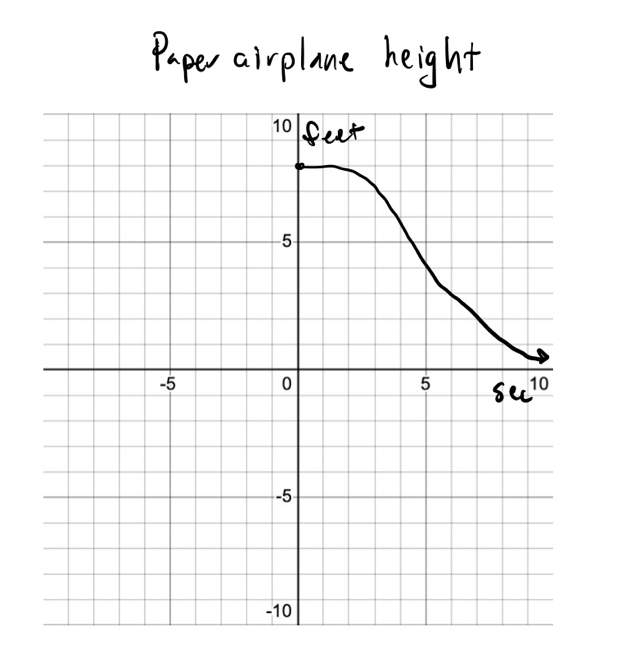 Paper airplane height
10
feet
5
-5
0
5
sec
10
-5
-10